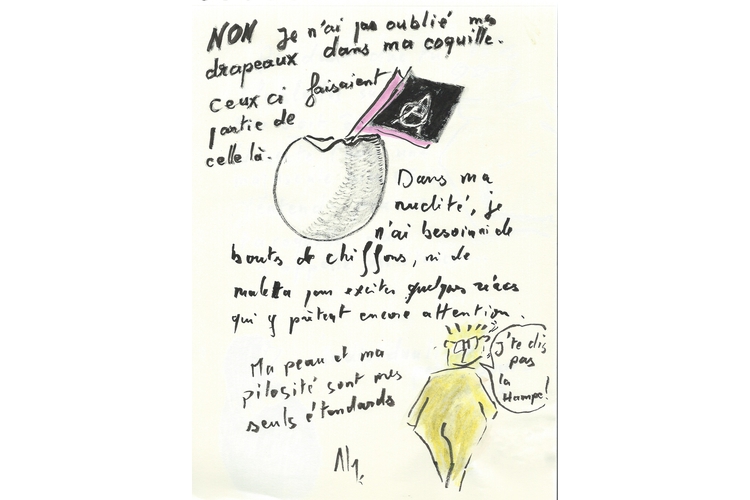 NON Je n'ai pas oublié mes
drapeaux dans ma coquille.
Ceux ci faisaient
partie de
celle là.
A
Dans ma
nudité, je
n'ai besoin ni de
bouts de chiffons, ni de
pour exciter quelques réacs
qui y prêtent encore attention.
Ma peau et ma
pilosité sont mes
seuls étendards
J'te dis
pas
la
Hampe!